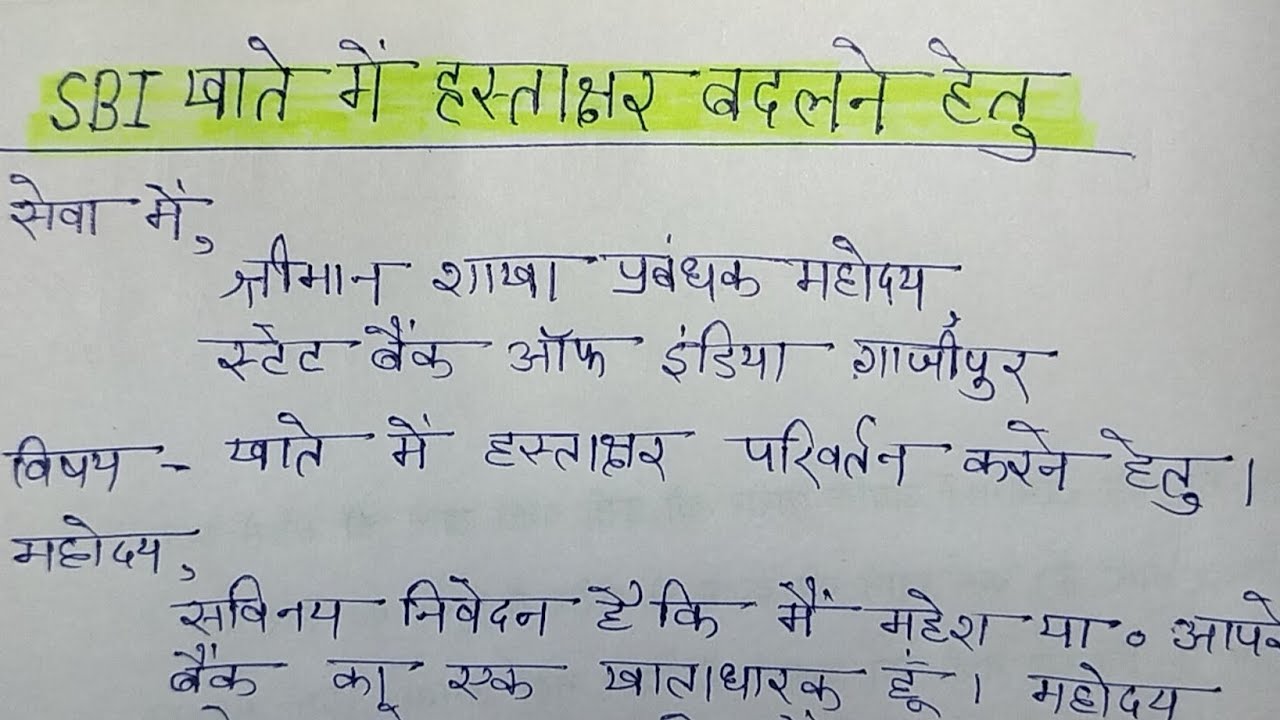 SBI खाते में हस्ताक्षर बदलने हेतु
सेवा में,
श्रीमान शाखा प्रबंधक महोदय,
स्टेट बैंक ऑफ इंडिया ग़ाजीपुर
विषय - खाते में हस्ताक्षर परिवर्तन करने हेतु।
महोदय,
सविनय निवेदन है कि मैं महेश या० आपके
बैंक का एक खाताधारक हूँ। महोदय